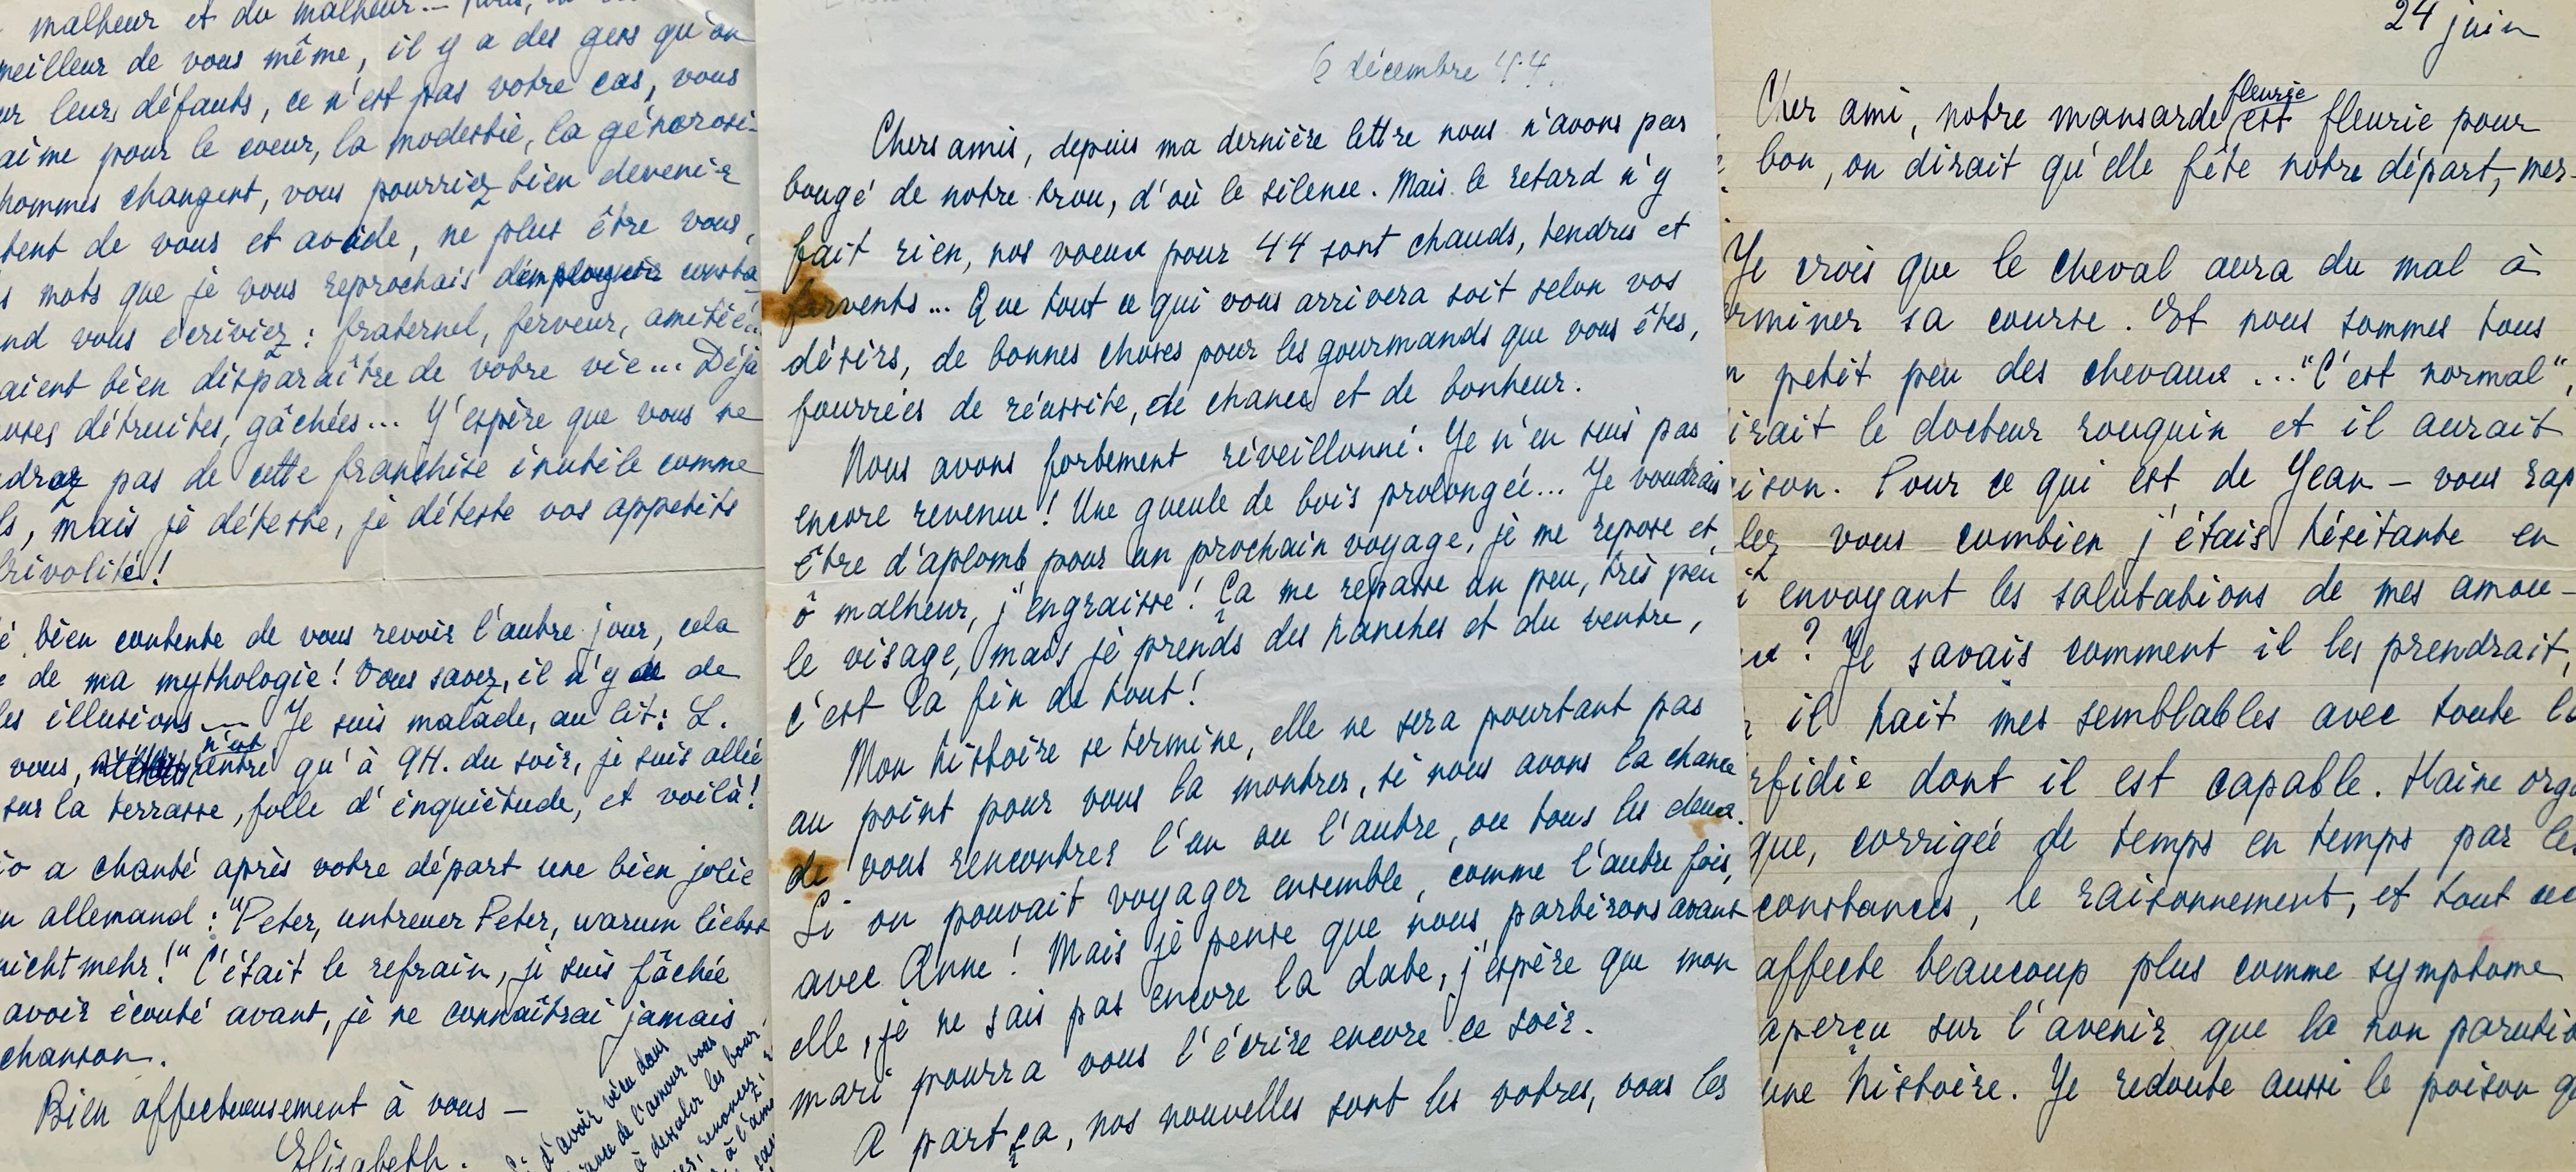 malheur et du malheur.—
meilleur de vous même, il y a des gens qu'on
leurs défauts, ce n'est pas votre cas, vous
aime pour le coeur, la modestie, la générosi-
hommes changent, vous pourriez bien devenir
tent de vous et avide, ne plus être vous,
mots que je vous reprochais d'employer
nd vous écriviez : fraternel, ferveur, amitié...
aient bien disparaître de votre vie... Déjà
détruites, gâchées... J'espère que vous ne
pas de cette franchise inutile comme
mais je déteste, je déteste vos appetits
frivolité !
bien contente de vous revoir l'autre jour, cela
de ma mythologie ! Vous savez, il n'y a de
illusions — Je suis malade, au lit : L.
vous, n'est rentré qu'à 9H. du soir, je suis allée
sur la terrasse, folle d'inquiétude, et voilà !
a chanté après votre départ une bien jolie
allemand : "Peter, untreuer Peter, warum liebst
nicht mehr !" C'était le refrain, je suis fâchée
avoir écouté avant, je ne connaîtrai jamais
chanson.
Bien affectueusement à vous —
Elisabeth.
d'avoir vécu dans
de l'amour vous
à dessaler les
à l'

6 décembre 44.
Chers amis, depuis ma dernière lettre nous n'avons pas
bougé de notre trou, d'où le silence. Mais le retard n'y
fait rien, nos voeux pour 44 sont chauds, tendres et
fervents... Que tout ce qui vous arrivera soit selon vos
désirs, de bonnes choses pour les gourmands que vous êtes,
fourrées de réussite, de chance et de bonheur.
Nous avons fortement réveillonné. Je n'en suis pas
encore revenue ! Une gueule de bois prolongée... Je voudrais
être d'aplomb pour un prochain voyage, je me repose et,
ô malheur, j'engraisse ! Ça me repasse un peu, très peu
le visage, mais je prends des hanches et du ventre,
c'est la fin de tout !
Mon histoire se termine, elle ne sera pourtant pas
au point pour vous la montrer, si nous avons la chance
de vous rencontrer l'un ou l'autre, ou tous les deux.
Si on pouvait voyager ensemble, comme l'autre fois,
avec Anne ! Mais je pense que nous partirons avant
elle, je ne sais pas encore la date, j'espère que mon
mari pourra vous l'écrire encore ce soir.
A part ça, nos nouvelles sont les votres, vous les

24 juin
Cher ami, notre mansarde est fleurie fleurie pour
bon, on dirait qu'elle fête notre départ, mer-
Je crois que le cheval aura du mal à
rminer sa course. Et nous sommes tous
n petit peu des chevaux... "C'est normal",
irait le docteur rouquin et il aurait
ison. Pour ce qui est de Jean — vous rap
lez vous combien j'étais hésitante en
envoyant les salutations de mes amou-
x ? Je savais comment il les prendrait,
il hait mes semblables avec toute la
rfidie dont il est capable. Haine orga
que, corrigée de temps en temps par les
constances, le raisonnement, et tout ce
affecte beaucoup plus comme symptome
aperçu sur l'avenir que la non parutio
une histoire. Je redoute aussi le poison q